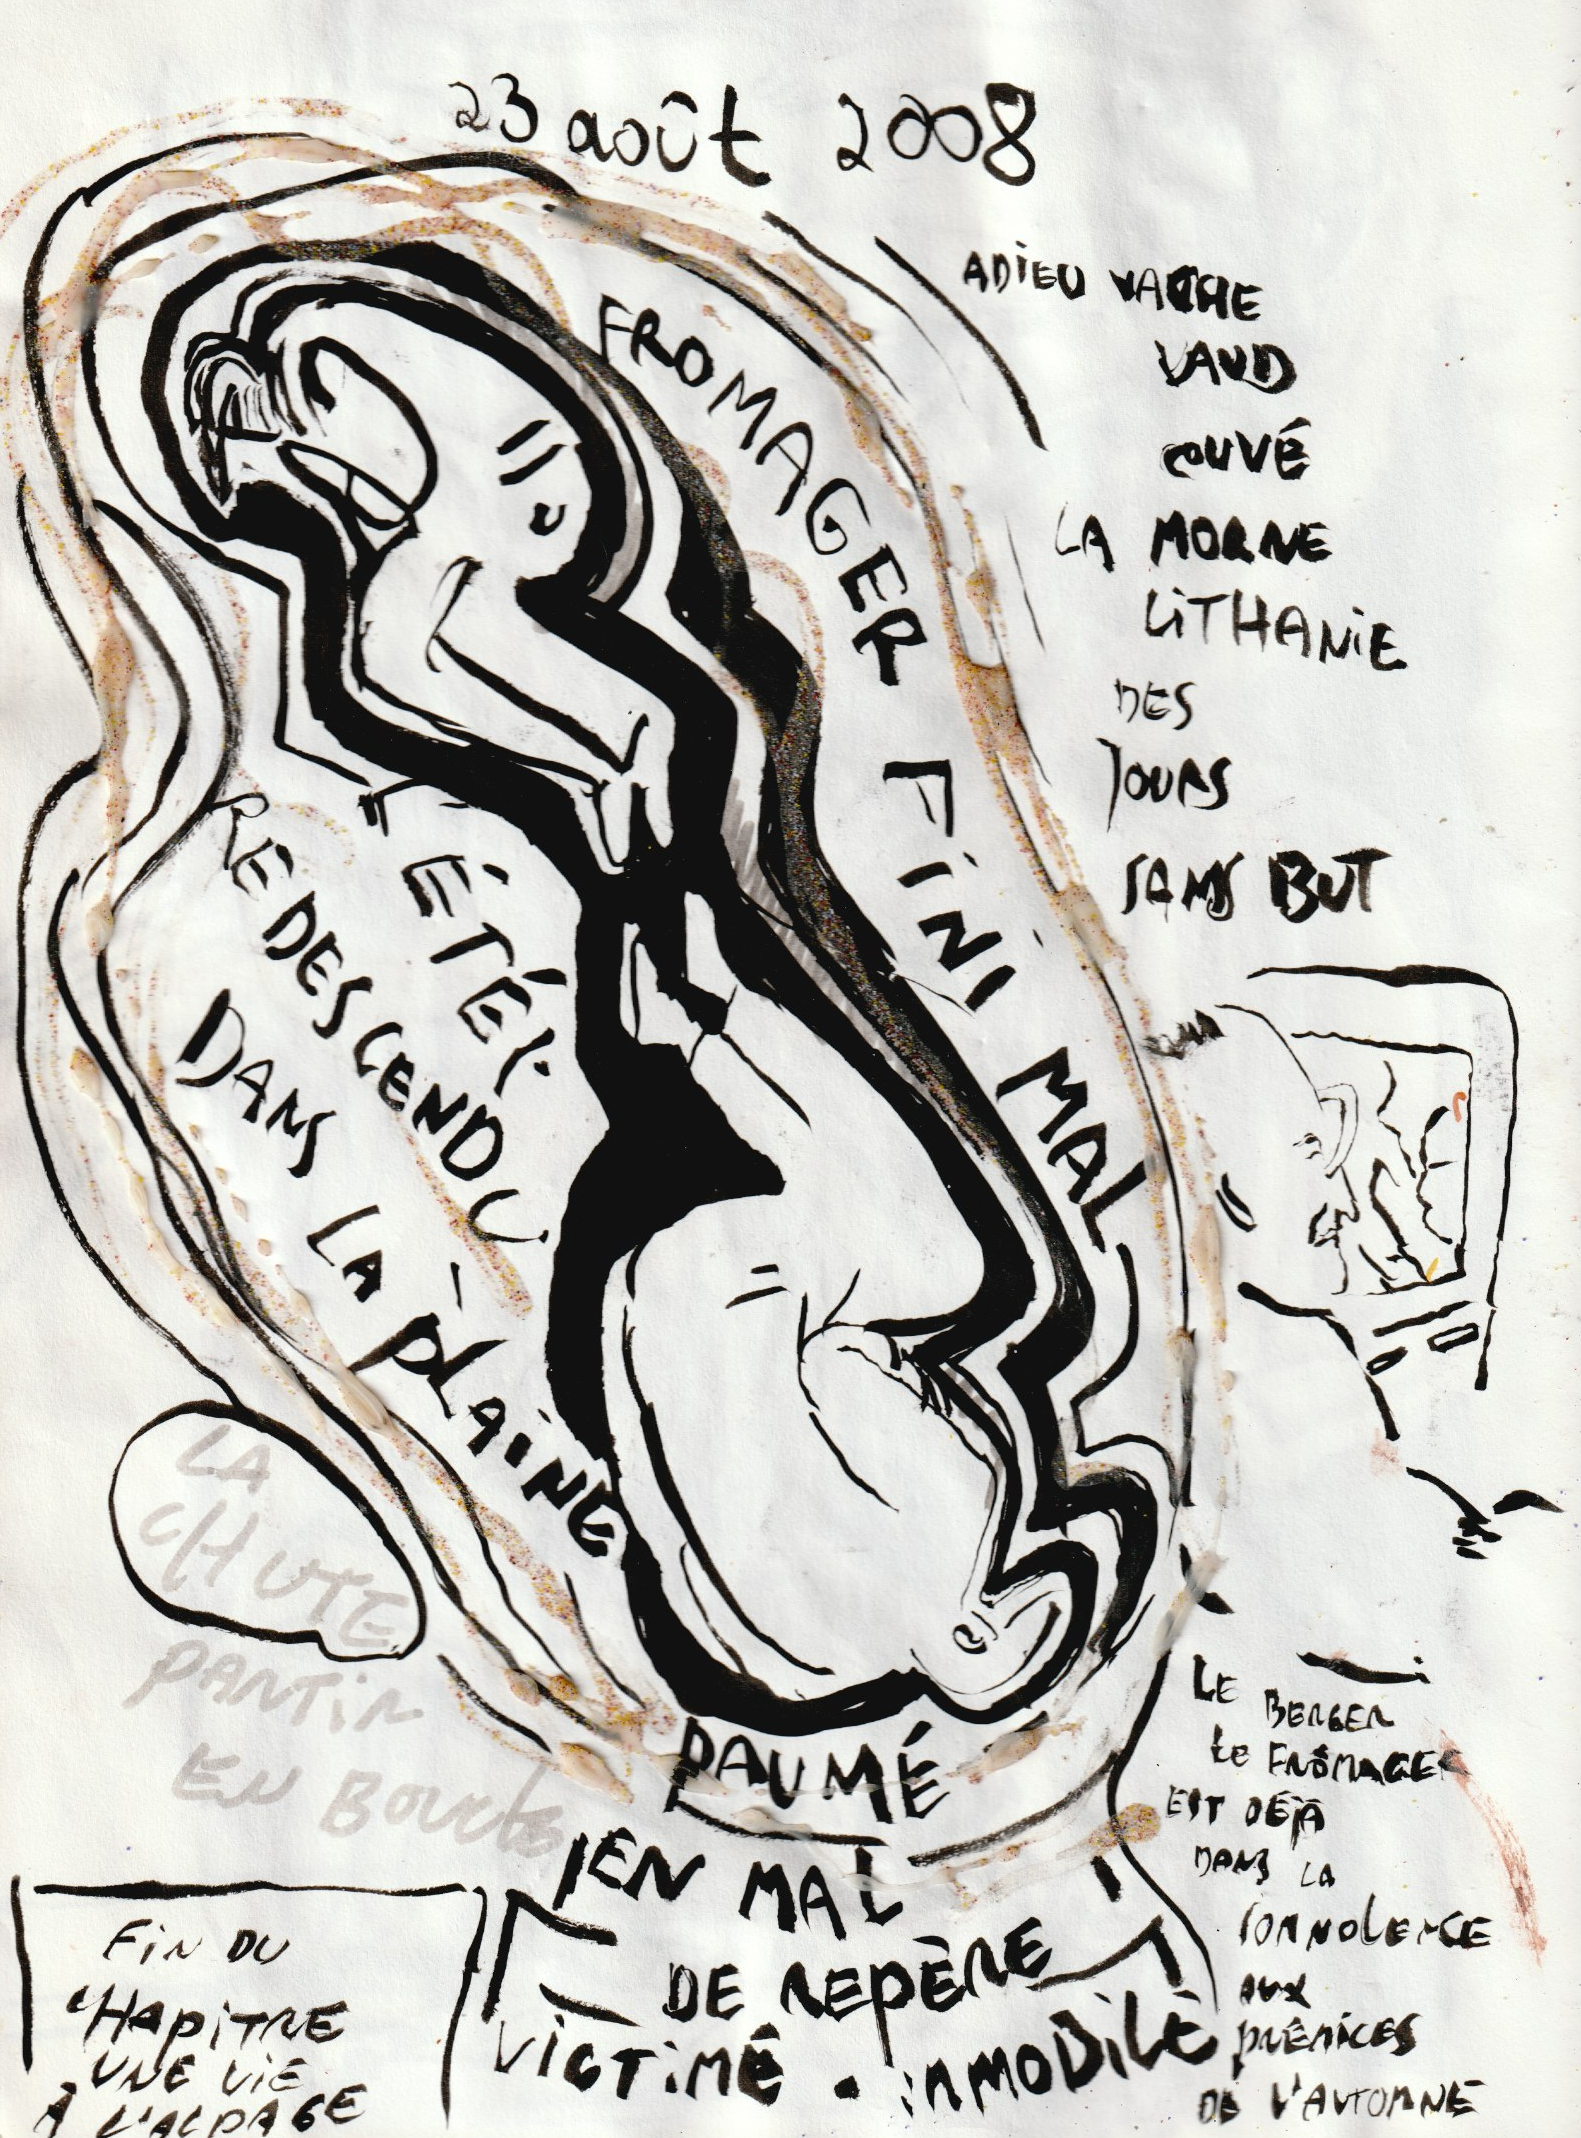 23 août 2008
ADIEU VACHE
VAUD
COUVÉ
LA MORNE
LITHANIE
DES
JOURS
SANS BUT
FROMAGER FINI MAL
L'ÉTÉ
REDESCENDU
DANS LA PLAINE
LA
CHUTE
PANTIN
EN BOUCLE
PAUMÉ
EN MAL
DE REPÈRE
VICTIME. IMMOBILE
FIN DU
CHAPITRE
UNE VIE
À L'ALPAGE
LE BERGER
LE FROMAGER
EST DÉJÀ
DANS LA
SONNOLENCE
AUX
PRÉMICES
DE L'AUTOMNE